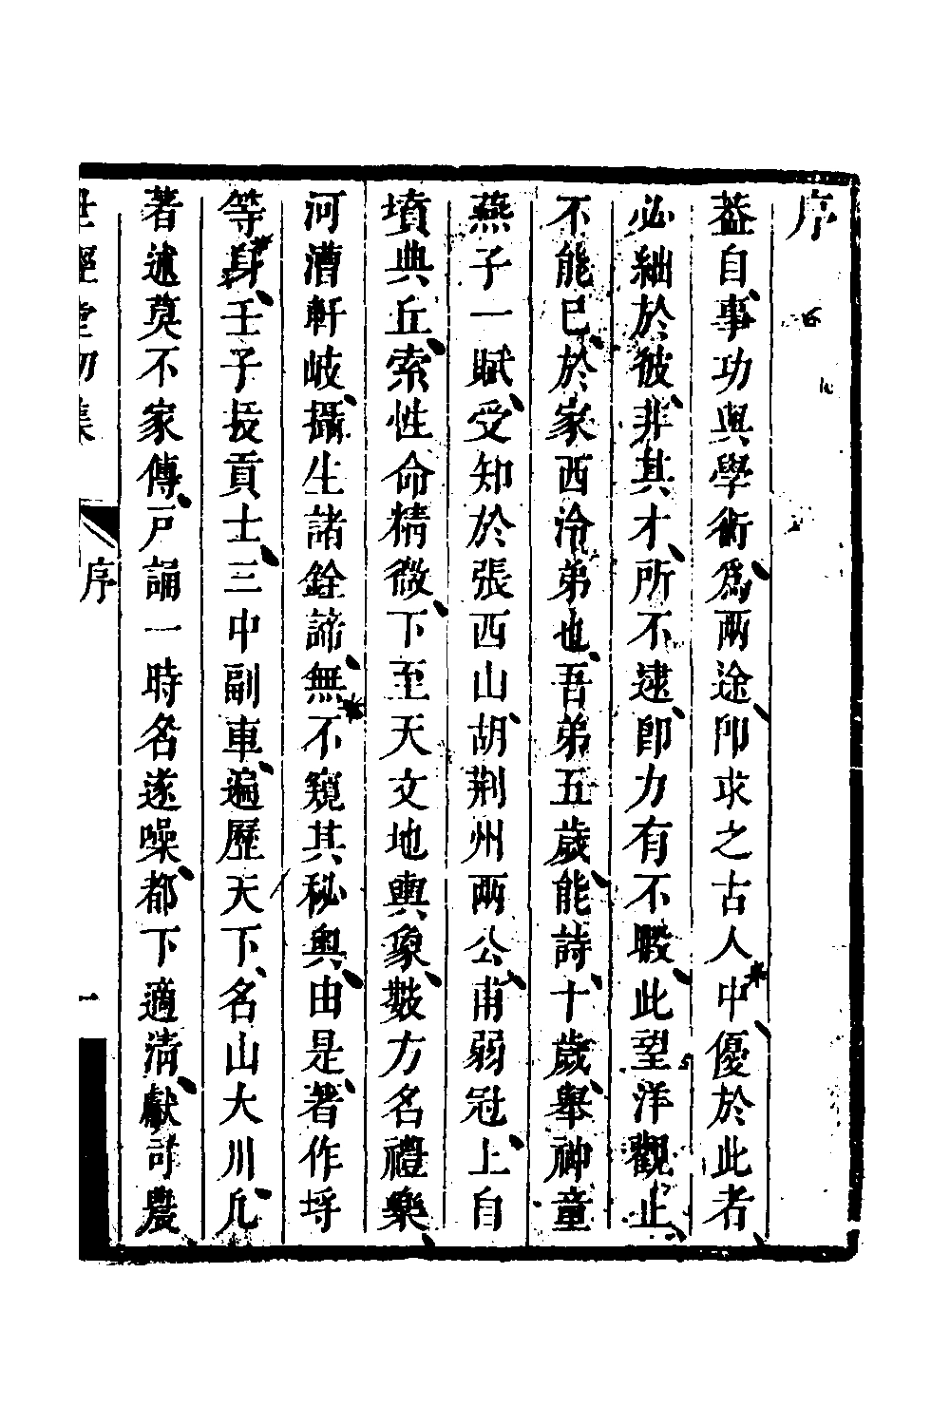 序
葢自事功與學術爲兩途卽求之古人中優於此者
必絀於彼非其才所不逮卽力有不暇此望洋觀止
不能已於家西泠弟也吾弟五歲能詩十歲舉神童
燕子一賦受知於張西山胡荆州兩公甫弱冠上自
墳典丘索性命精微下至天文地輿象數方名禮樂
河漕軒岐攝生諸銓諦無不窺其秘奥由是著作埒
等身壬子拔貢士三中副車遍歷天下名山大川凢
著述莫不家傳戸誦一時名遂噪都下適清獻司農
世經堂初集
序
一